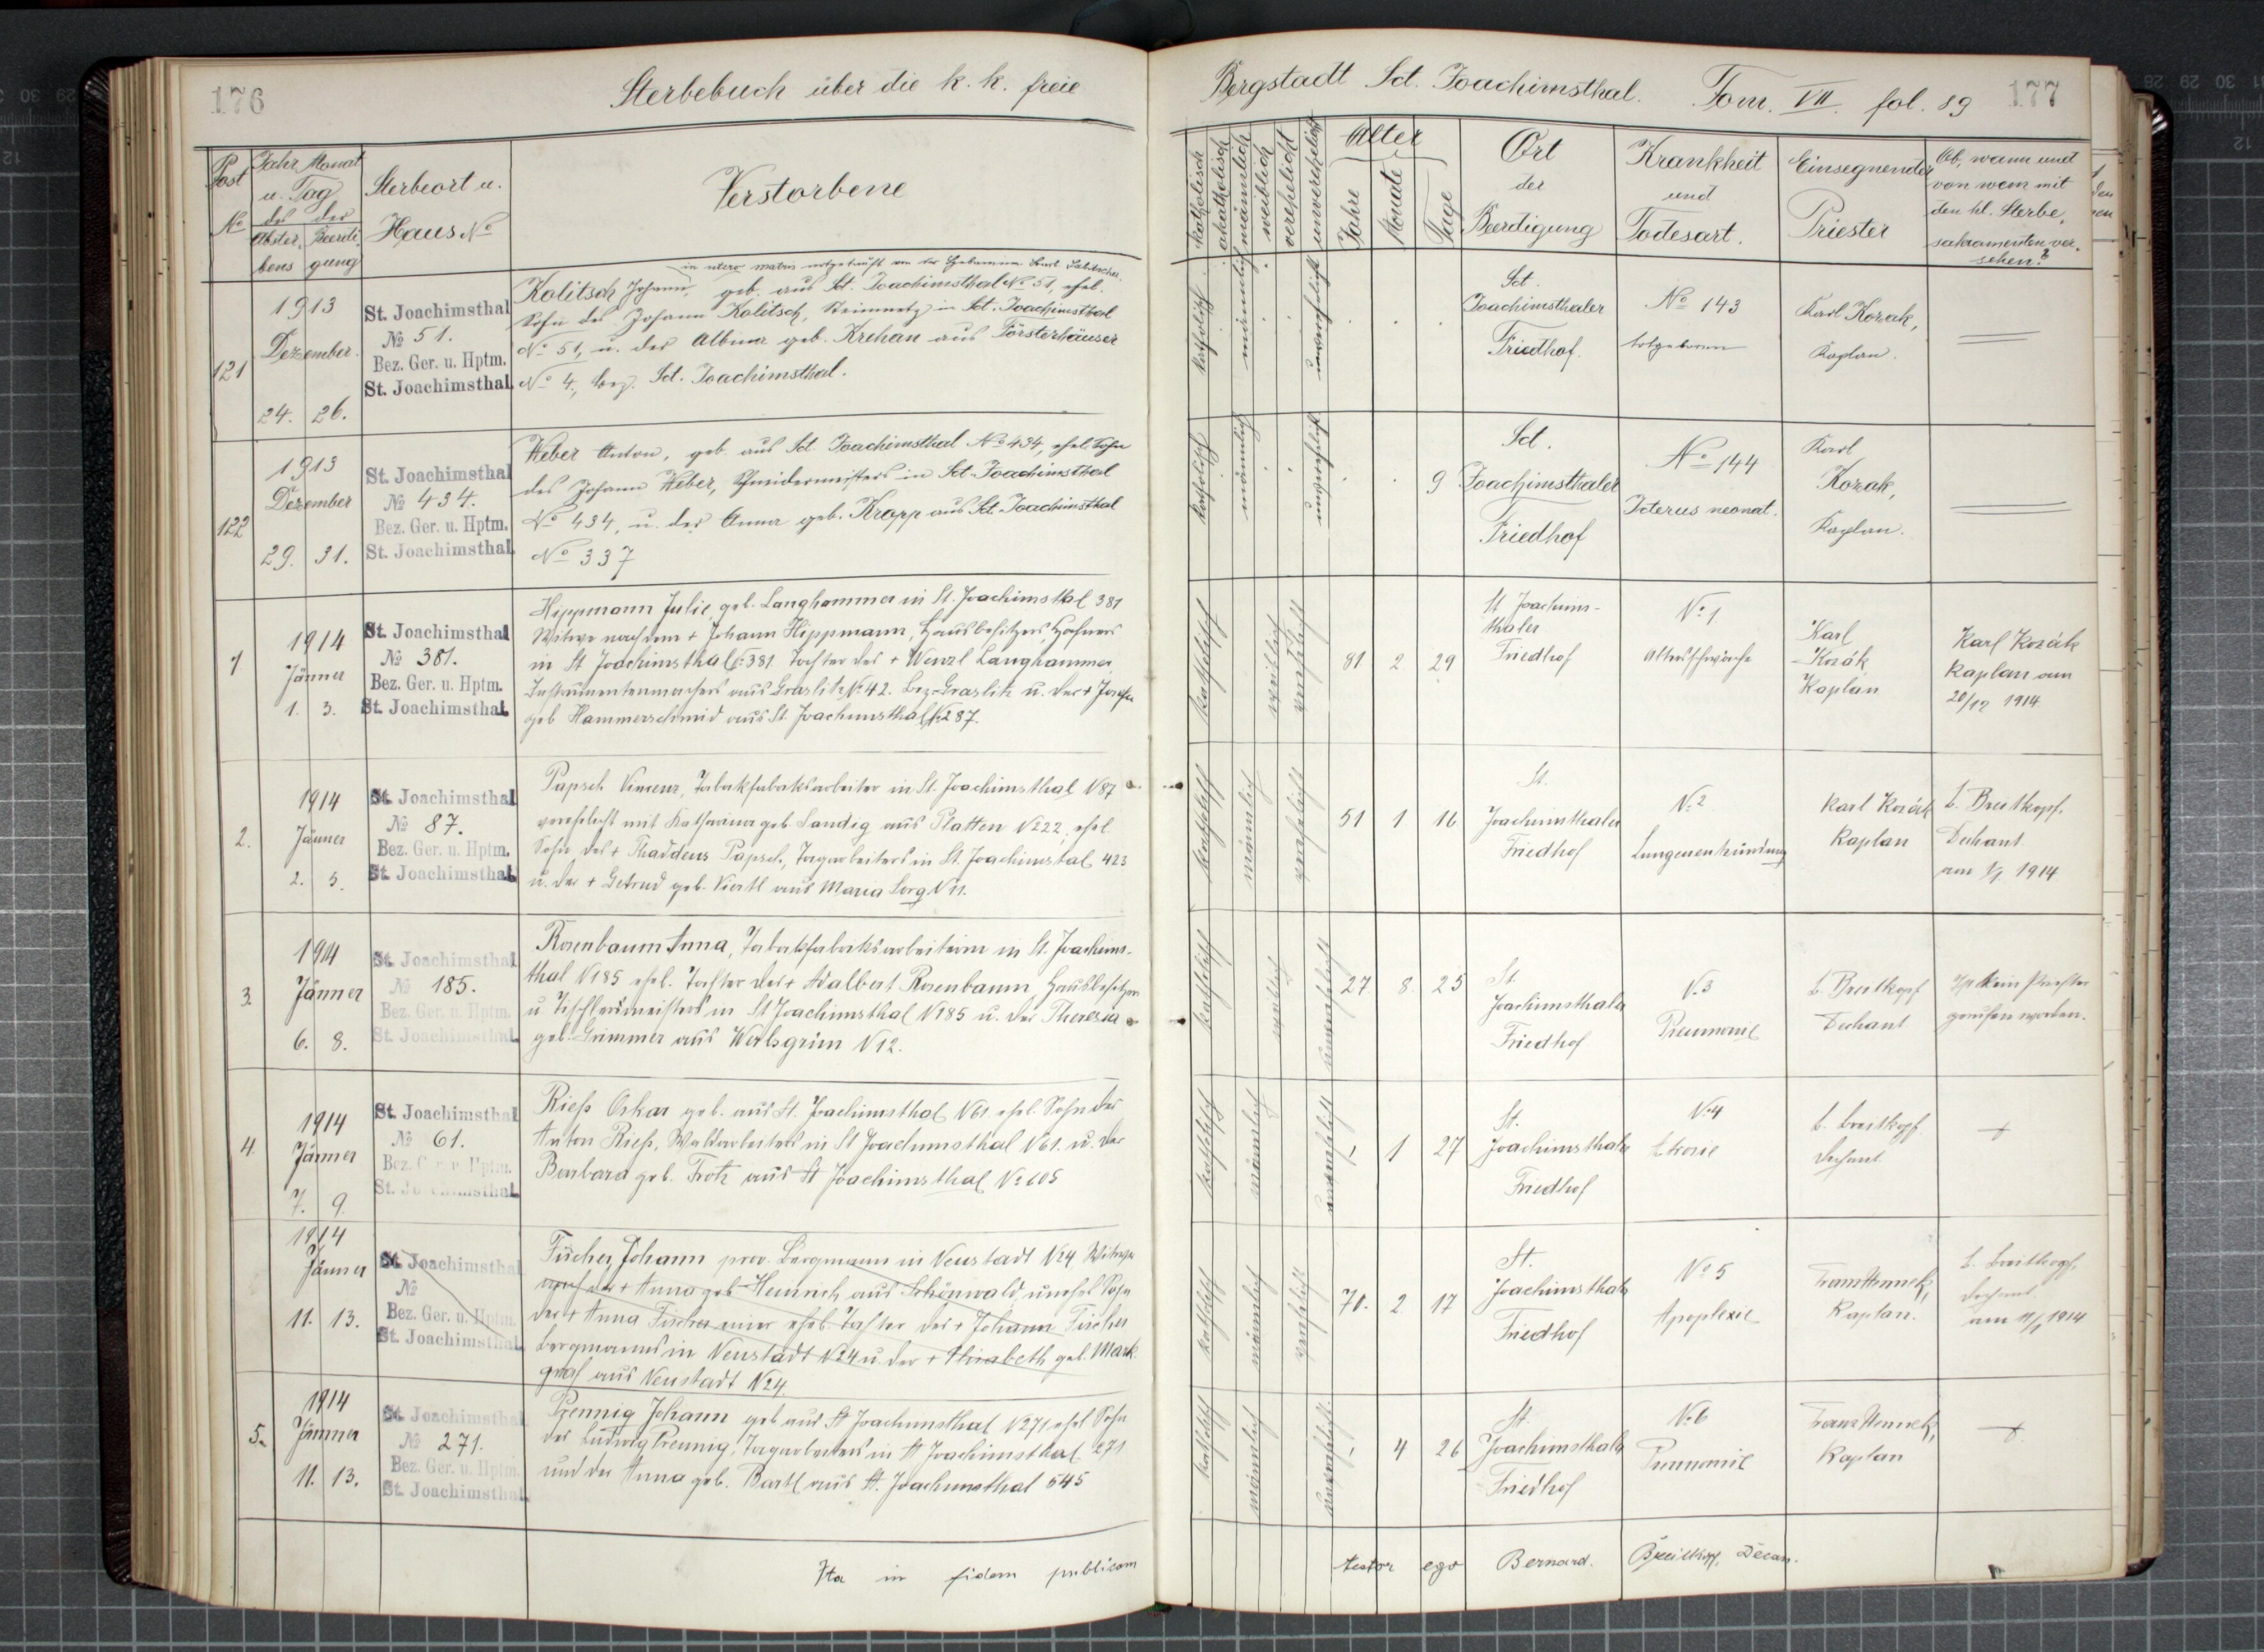 176
Sterbebuch über die k. k. freie
Post
No
Jahr Monat
u. Tag
des der
Abster, Beerdi
bens gung
Sterbeort u.
Haus No
Verstorbene
121
1913
Dezember
24. 26.
St. Joachimsthal
No 51.
Bez. Ger. u. Hptm.
St. Joachimsthal
in utero matris notgetauft von der Hebamme
Kolitsch Johann, geb. aus Sct. Joachimsthal No 51, ehel.
Sohn des Johann Kolitsch, Steinmetz in Sct. Joachimsthal
No 51, u. der Albina geb. Krehan aus Försterhäuser
No 4, bez. Sct. Joachimsthal.
122
1913
Dezember
29. 31.
St. Joachimsthal
No 434.
Bez. Ger. u. Hptm.
St. Joachimsthal
Weber Anton, geb. aus Sct. Joachimsthal No 434, ehel. Sohn
des Johann Weber, Schneidermeisters in Sct. Joachimsthal
No 434, u. der Anna geb. Kropp aus Sct. Joachimsthal
No 337
1
1914
Jänner
1. 3.
St. Joachimsthal
No 381.
Bez. Ger. u. Hptm.
St. Joachimsthal
Hippmann Julie, geb. Langhammer in St. Joachimsthal 381
Witwe nach dem + Johann Hippmann, Hausbesitzers, Hafners
in St Joachimsthal No 381 Tochter des + Wenzl Langhammer,
Instrumentenmachers aus Graslitz No 42. Bez. Graslitz u. der + Josefa
geb Hammerschmid aus St Joachimsthal No 287.
2.
1914
Jänner
2. 5.
St. Joachimsthal
No 87.
Bez. Ger. u. Hptm.
St. Joachimsthal
Papsch Vinzenz, Tabakfabriksarbeiter in St. Joachimsthal N 87
verehelicht mit Katharina geb. Landig aus Platten No 222, ehel.
Sohn des + Thaddeus Papsch, Tagarbeiters in St. Joachimstal 423
u. der + Getrud geb. Viertl aus Maria Sorg N 11.
3.
1914
Jänner
6. 8.
St. Joachimsthal
No 185.
Bez. Ger. u. Hptm.
St. Joachimsthal
Rosenbaum Anna, Tabakfabriksarbeiterin in St. Joachims-
thal N 185 ehel. Tochter des + Adalbert Rosenbaum Hausbesitzers
u Tischlermeisters in St Joachimsthal N 185 u. der Theresia
geb. Grimmer aus Werlsgrün N 12.
4.
1914
Jänner
7. 9.
St. Joachimsthal
No 61.
Bez. Ger. u. Hptm.
St. Joachimsthal
Rieß Oskar geb. aus St. Joachimsthal N 61. ehel. Sohn des
Anton Rieß, Waldarbeiters in St Joachimsthal N 61. u. der
Barbara geb. Trotz aus St Joachimsthal No 605
1914
Jänner
11. 13.
St. Joachimsthal
No
Bez. Ger. u. Hptm.
St. Joachimsthal
Fischer Johann prov. Bergmann in Neustadt No 4 Witwer
nach der + Anna geb Heinrich aus Schönwald, unehel Sohn
der + Anna Fischer einer ehel. Tochter des + Johann Fischer
Bergmanns in Neustadt No 4 u. der + Elisabeth geb. Mark-
graf aus Neustadt No 4
5.
1914
Jänner
11. 13.
St. Joachimsthal
No 271.
Bez. Ger. u. Hptm.
St. Joachimsthal
Johann geb aus St Joachimsthal N 271 ehel Sohn
des Ludwig Tagarbeiters in St Joachimsthal 271
und der Anna geb. Bartl aus St. Joachimsthal 645
Ita in fidem publicam
Bergstadt Sct. Joachimsthal. Tom. VII. fol. 89
177
katholisch
akatholisch
männlich
weiblich
verehelicht
unverehelicht
Alter
Jahre
Monate
Tage
Ort
der
Beerdigung
Krankheit
und
Todesart.
Einsegnender
Priester
Ob, wann und
von wem mit
den hl. Sterbe,
sakramenten ver,
sehen?
katholisch
männlich
unverehelicht
Sct.
Joachimsthaler
Friedhof.
No 143
totgeboren
Karl Kozak,
Kaplan.
katholisch
männlich
unverehelicht
9
Sct.
Joachimsthaler
Friedhof
No 144
Icterus neonat.
Karl
Kozak,
Kaplan.
katholisch
weiblich
verehelicht
81 2 29
St Joachims-
thaler
Friedhof
No 1
Altersschwäche
Karl
Kozák
Kaplan
Karl Kozák
Kaplan am
20/12 1914
katholisch
männlich
verehelicht
51 1 16
St.
Joachimsthaler
Friedhof
No 2
Lungenentzündung
Karl Kozák
Kaplan
b. Breitkopf,
Dechant
am 1/1 1914
katholisch
weiblich
unverehelicht
27. 8. 25
St.
Joachimsthaler
Friedhof
N. 3
Pneumonie
b. Breitkopf
Dechant
Ist kein Priester
gerufen worden.
katholisch
männlich
unverehelicht
1 27
St.
Joachimsthaler
Friedhof
No 4
b. Breitkopf
Dechant
katholisch
männlich
verehelicht
71. 2 17
St.
Joachimsthaler
Friedhof
No 5
Apoplexie
Kaplan.
b. Breitkopf,
Dechant
am 11/1 1914
katholisch
männlich
unverehelicht
4 26
St.
Joachimsthaler
Friedhof
No 6
Pneumonie
Kaplan
testor ego Bernard. Breitkopf, Decan.